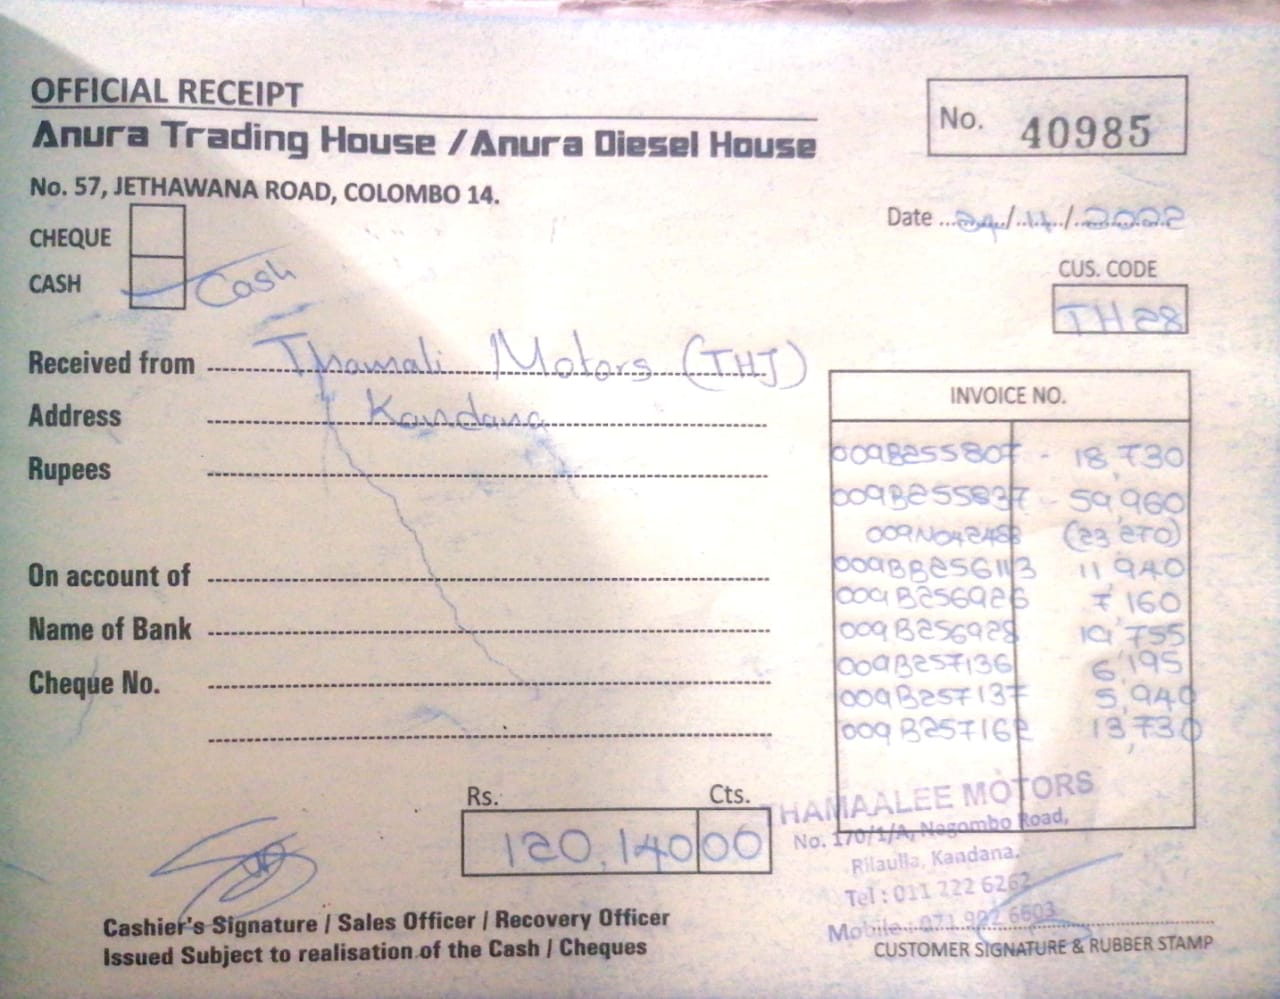 OFFICIAL RECEIPT
Anura Trading House / Anura Diesel House
No. 57, JETHAWANA ROAD, COLOMBO 14.
No. 40985
Date 24/11/2022
CHEQUE
CASH Cash
CUS. CODE
TH28
Received from Thamali Motors (THJ)
Address Kandana
Rupees
On account of
Name of Bank
Cheque No.
INVOICE NO.
009B255807 - 18,730
009B255837 - 59,960
009N042488 (23,270)
009BB256113 11,940
009B256926 7,160
009B256928 19,755
009B257136 6,195
009B257137 5,940
009B257162 13,730
Rs. Cts.
120,140 00
THAMAALEE MOTORS
No. 170/1/A, Nagombo Road,
Rilaulla, Kandana.
Tel : 011 222 6262
Mobile : 071 902 6603
Cashier's Signature / Sales Officer / Recovery Officer
Issued Subject to realisation of the Cash / Cheques
CUSTOMER SIGNATURE & RUBBER STAMP